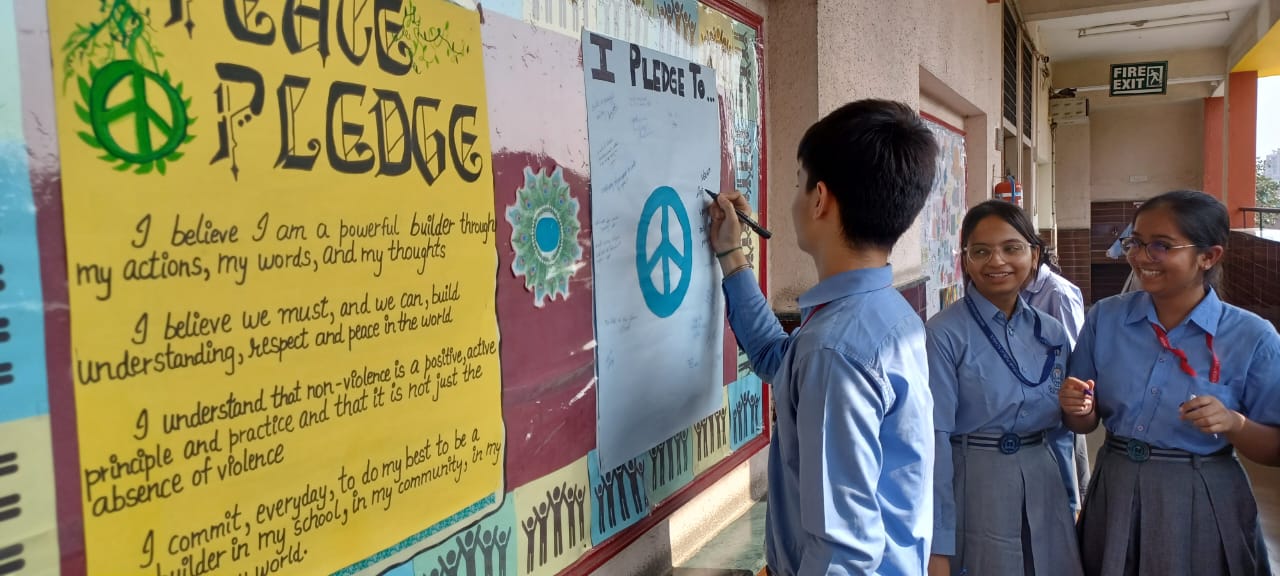 PEACE
PLEDGE
I believe I am a powerful builder through
my actions, my words, and my thoughts
I believe we must, and we can, build
understanding, respect and peace in the world
I understand that non-violence is a positive, active
principle and practice and that it is not just the
absence of violence
I commit, everyday, to do my best to be a
builder in my school, in my community, in my
world.
I PLEDGE TO...
FIRE
EXIT